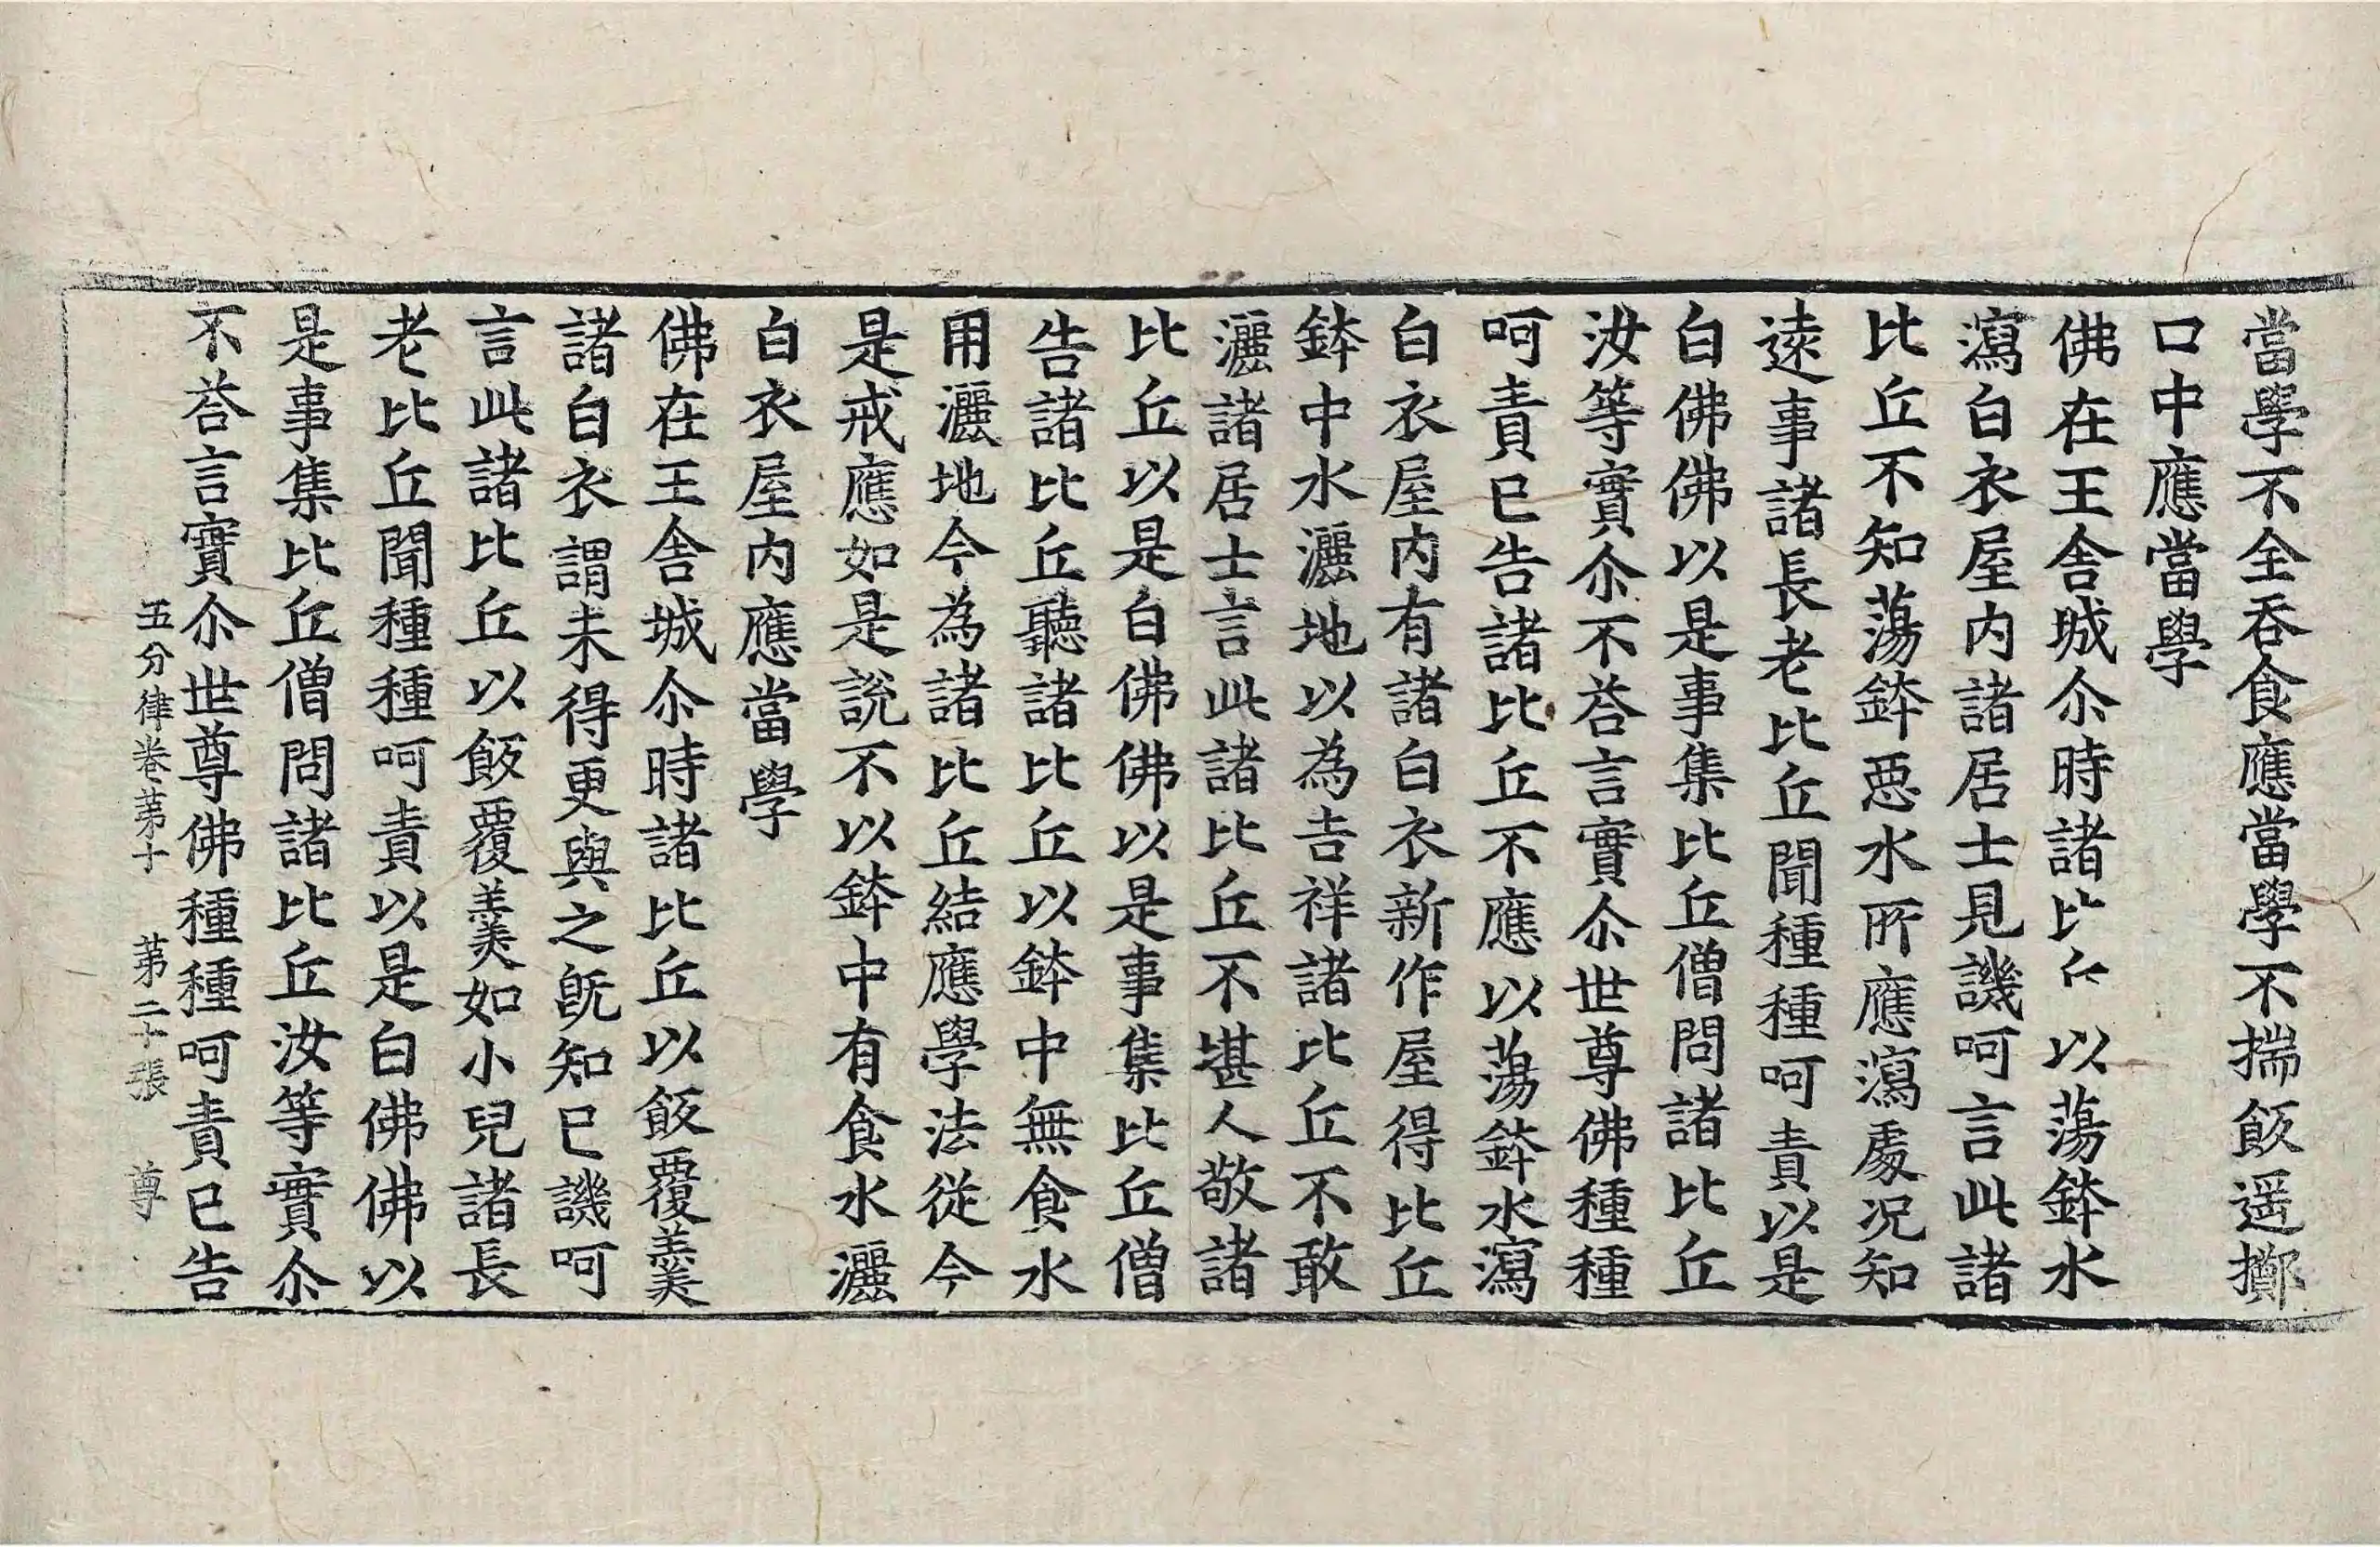 當學不全吞食應當學不揣飯遥擲
口中應當學
佛在王舍城尒時諸比丘以蕩鉢水
瀉白衣屋内諸居士見譏呵言此諸
比丘不知蕩鉢惡水所應瀉處況知
遠事諸長老比丘聞種種呵責以是
白佛佛以是事集比丘僧問諸比丘
汝等實尒不荅言實尒世尊佛種種
呵責已告諸比丘不應以蕩鉢水瀉
白衣屋内有諸白衣新作屋得比丘
鉢中水灑地以為吉祥諸比丘不敢
灑諸居士言此諸比丘不堪人敬諸
比丘以是白佛佛以是事集比丘僧
告諸比丘聽諸比丘以鉢中無食水
用灑地今為諸比丘結應學法從今
是戒應如是說不以鉢中有食水灑
白衣屋内應當學
佛在王舍城尒時諸比丘以飯覆羹
諸白衣謂未得更與之旣知已譏呵
言此諸比丘以飯覆羹如小兒諸長
老比丘聞種種呵責以是白佛佛以
是事集比丘僧問諸比丘汝等實尒
不荅言實尒世尊佛種種呵責已告
五分律卷苐十　苐二十張　尊